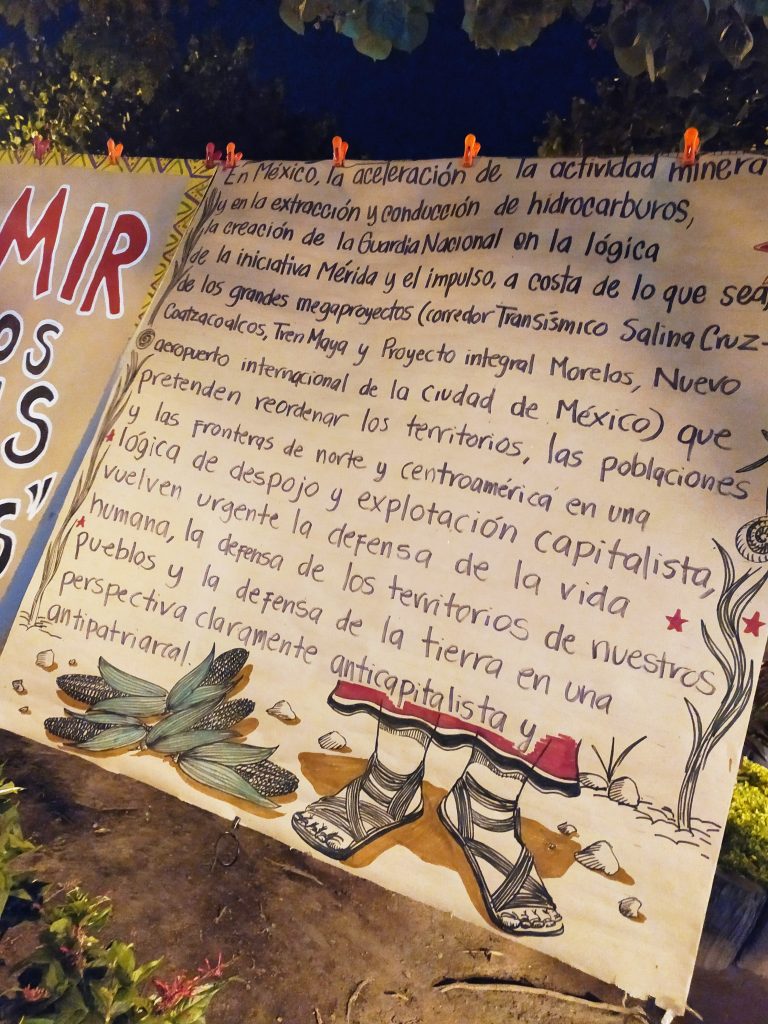 MIR
OS
S
S"
En México, la aceleración de la actividad minera
y en la extracción y conducción de hidrocarburos,
la creación de la Guardia Nacional en la lógica
de la iniciativa Mérida y el impulso, a costa de lo que sea,
de los grandes megaproyectos (corredor Transísmico Salina Cruz-
Coatzacoalcos, Tren Maya y Proyecto integral Morelos, Nuevo
aeropuerto internacional de la Ciudad de México) que
pretenden reordenar los territorios, las poblaciones
y las fronteras de norte y centroamérica en una
lógica de despojo y explotación capitalista,
vuelven urgente la defensa de la vida
humana, la defensa de los territorios de nuestros
pueblos y la defensa de la tierra en una
perspectiva claramente anticapitalista y
antipatriarcal.